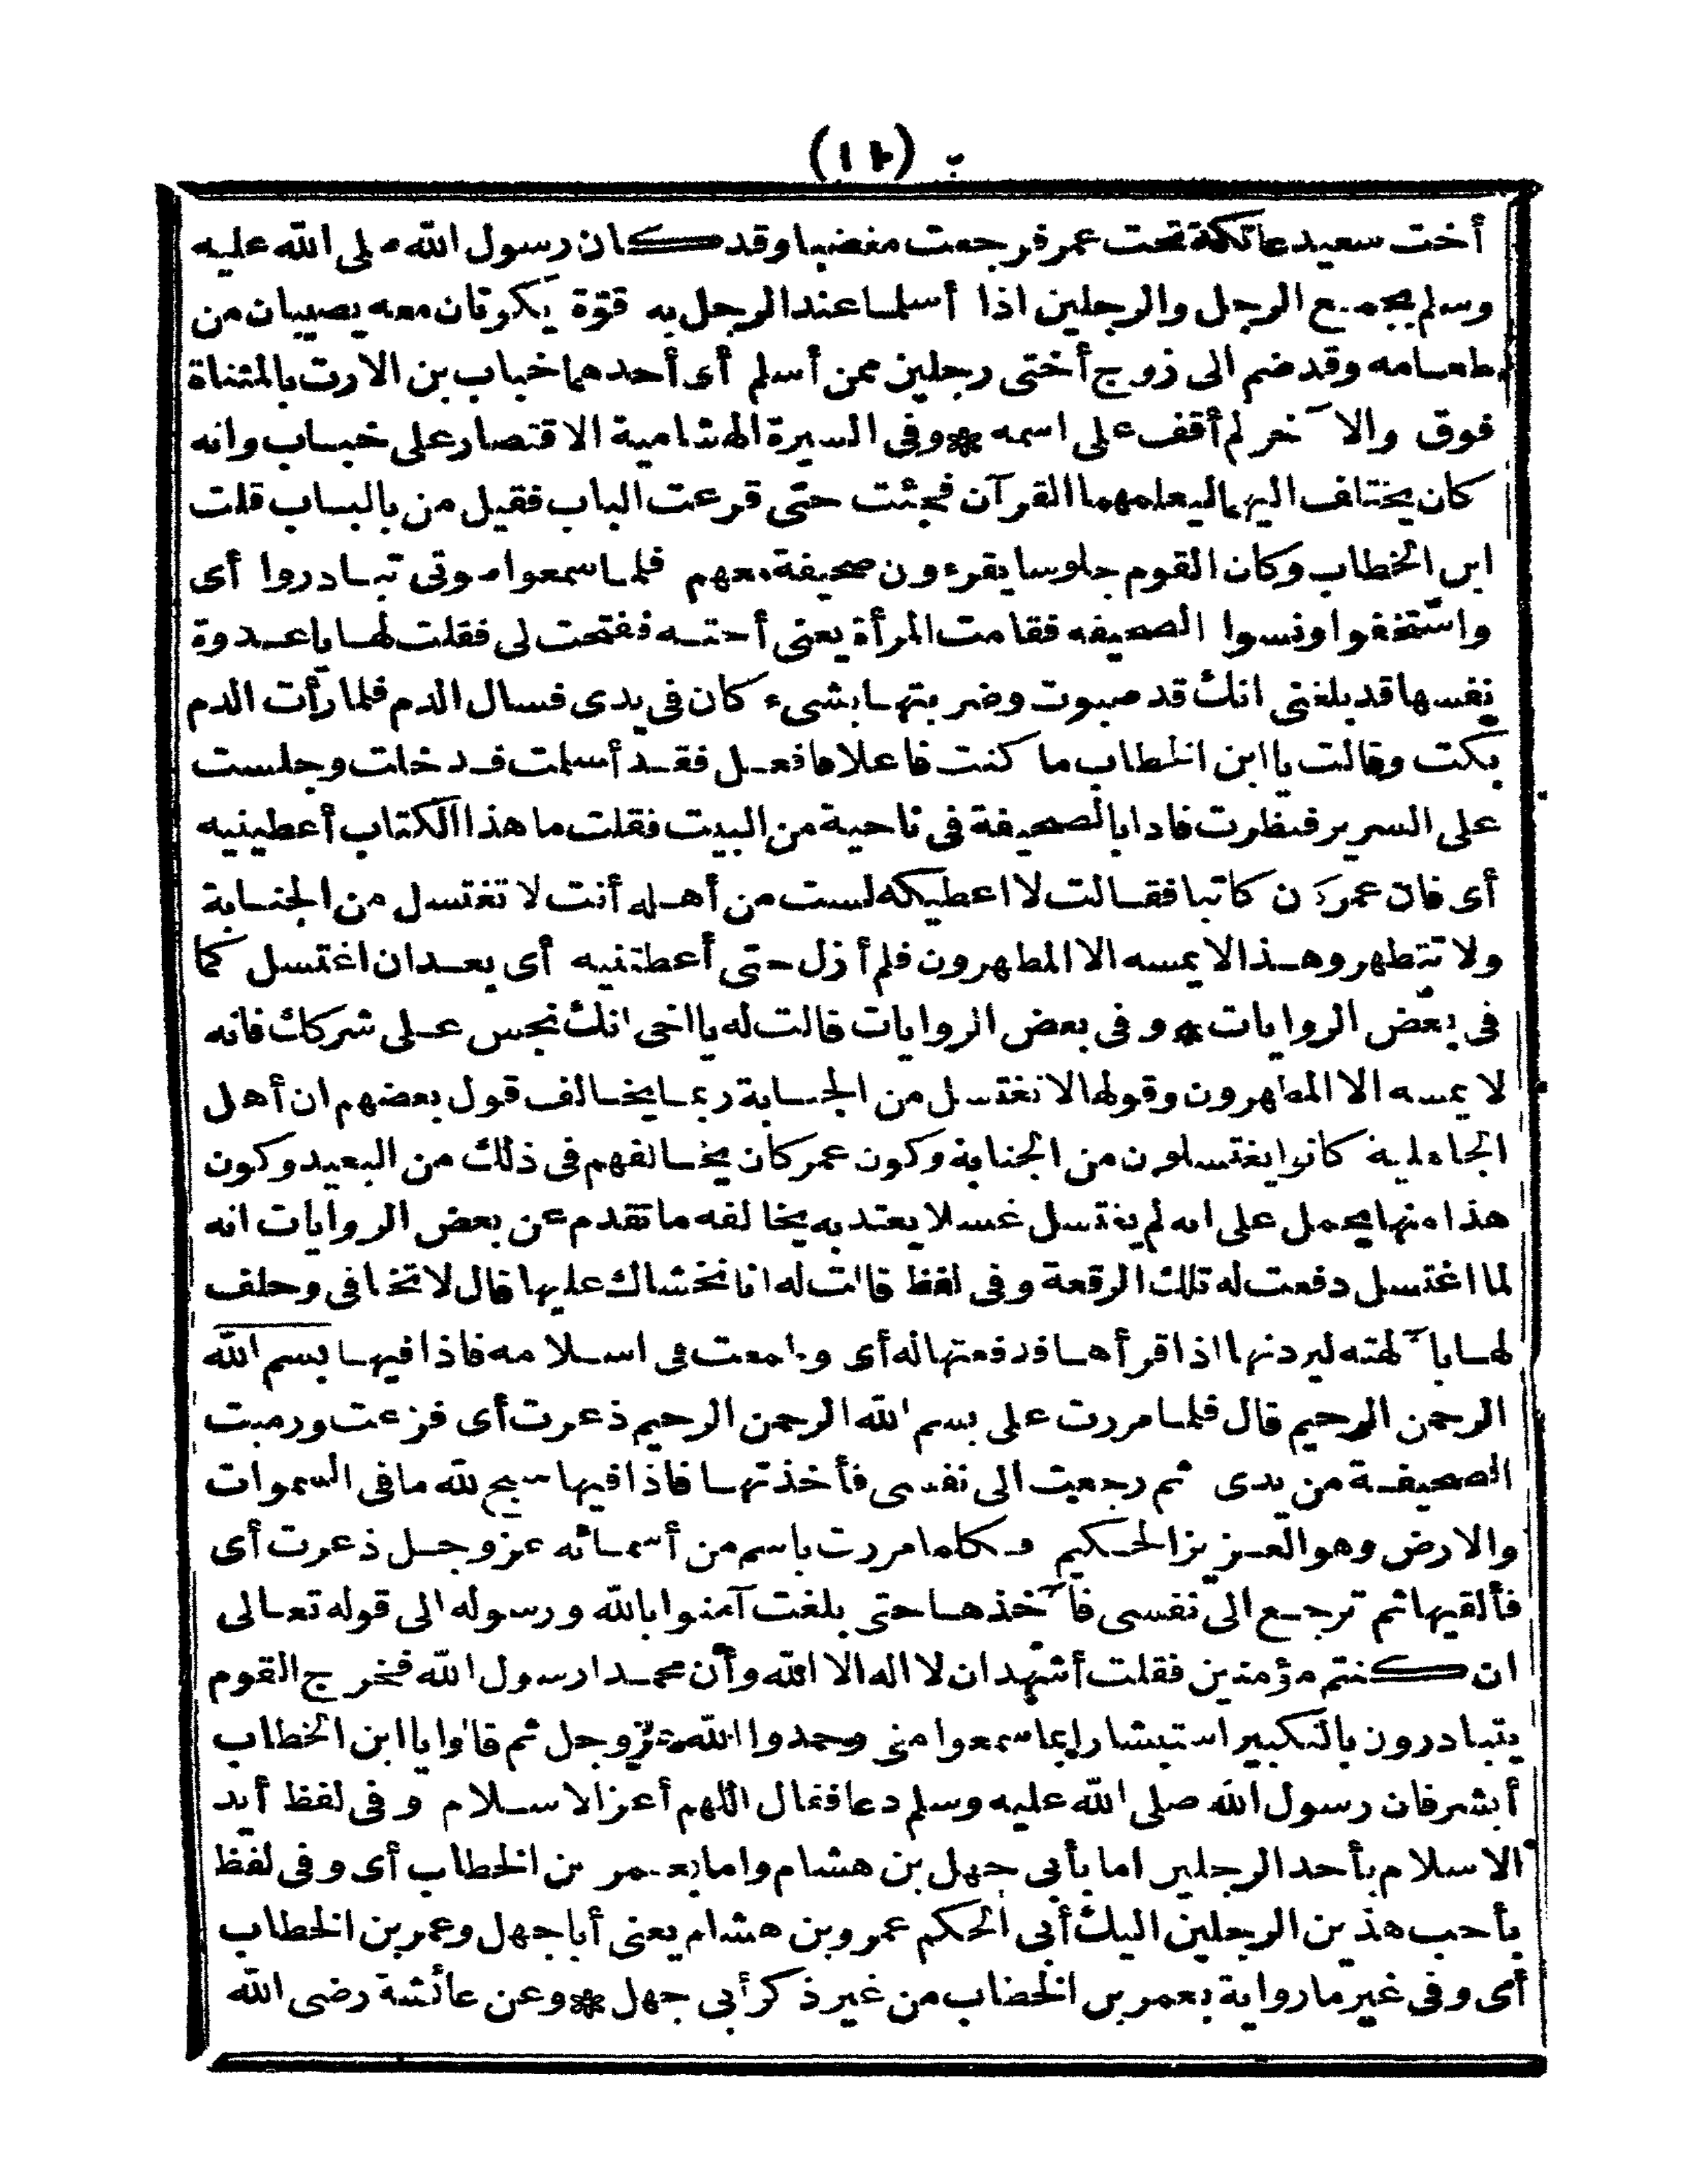 (١٢)
أخت سعيد عاتكة تحت عمر فرجعت مغضبا وقد كان رسول الله صلى الله عليه
وسلم يجمع الرجل والرجلين اذا أسلما عند الرجل به قوّة يكونان معه يصيبان من
طعامه وقد ضم الى زوج أختى رجلين ممن أسلم أى أحدهما خباب بن الارت بالمثناة
فوق والآخر لم أقف على اسمه * وفى السيرة الهشامية الاقتصار على خباب وانه
كان يختلف اليهما ليعلمهما القرآن فجئت حتى قرعت الباب فقيل من بالباب قلت
ابن الخطاب وكان القوم جلوسا يقرءون صحيفة معهم فلما سمعوا صوتى تبادروا أى
واستخفوا ونسوا الصحيفه فقامت المرأة يعنى أخته ففتحت لى فقلت لها ياعدوة
نفسها قد بلغنى انك قد صبوت وضربتها بشىء كان فى يدى فسال الدم فلما رأت الدم
بكت وقالت يا ابن الخطاب ما كنت فاعلا فافعل فقد أسلمت فدخلت وجلست
على السرير فنظرت فاذا بالصحيفة فى ناحية من البيت فقلت ما هذا الكتاب أعطينيه
أى فان عمر كان كاتبا فقالت لا اعطيكه لست من أهله أنت لا تغتسل من الجنابة
ولا تتطهر وهذا لا يمسه الا المطهرون فلم أزل حتى أعطتنيه أى بعد ان اغتسل كما
فى بعض الروايات * وفى بعض الروايات قالت له يا اخى انك نجس على شركك فانه
لا يمسه الا المطهرون وقولها لا تغتسل من الجنابة ربما يخالف قول بعضهم ان أهل
الجاهلية كانوا يغتسلون من الجنابة وكون عمر كان يخالفهم فى ذلك من البعيد وكون
هذا منها يحمل على انه لم يغتسل غسلا يعتد به يخالفه ما تقدم عن بعض الروايات انه
لما اغتسل دفعت له تلك الرقعة وفى لفظ قالت له انا نخشاك عليها قال لا تخافى وحلف
لها بآلهته ليردنها اذا قرأها فدفعتها له أى وطمعت فى اسلامه فاذا فيها بسم الله
الرحمن الرحيم قال فلما مررت على بسم الله الرحمن الرحيم ذعرت أى فزعت ورميت
الصحيفة من يدى ثم رجعت الى نفسى فأخذتها فاذا فيها سبح لله ما فى السموات
والارض وهو العزيز الحكيم فكلما مررت باسم من أسمائه عز وجل ذعرت أى
فألقيها ثم ترجع الىّ نفسى فآخذها حتى بلغت آمنوا بالله ورسوله الى قوله تعالى
ان كنتم مؤمنين فقلت أشهد ان لا اله الا الله وأن محمدا رسول الله فخرج القوم
يتبادرون بالتكبير استبشارا بما سمعوا منى وحمدوا الله عز وجل ثم قالوا يا ابن الخطاب
أبشر فان رسول الله صلى الله عليه وسلم دعا فقال اللهم أعز الاسلام وفى لفظ أيد
الاسلام بأحد الرجلين اما بأبى جهل بن هشام واما بعمر بن الخطاب أى وفى لفظ
بأحب هذين الرجلين اليك أبى الحكم عمرو بن هشام يعنى أبا جهل وعمر بن الخطاب
أى وفى غير ما رواية بعمر بن الخطاب من غير ذكر أبى جهل * وعن عائشة رضى الله